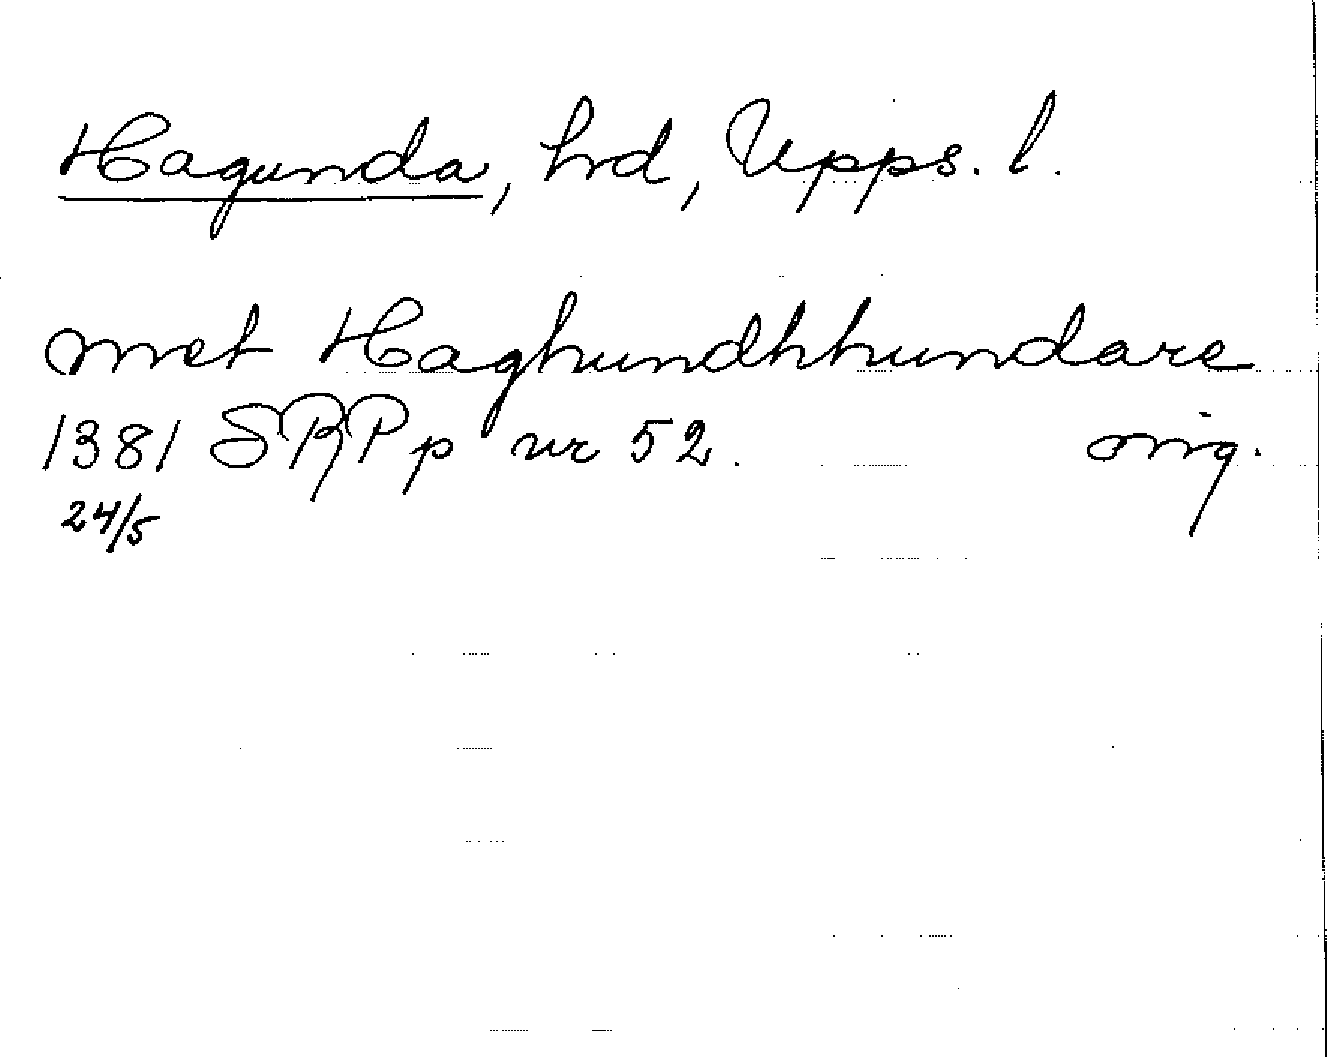 Hagunda, hrd, Upps. l.
met Haghundhhundare
1381 SRPp nr 52. orig.
24/5